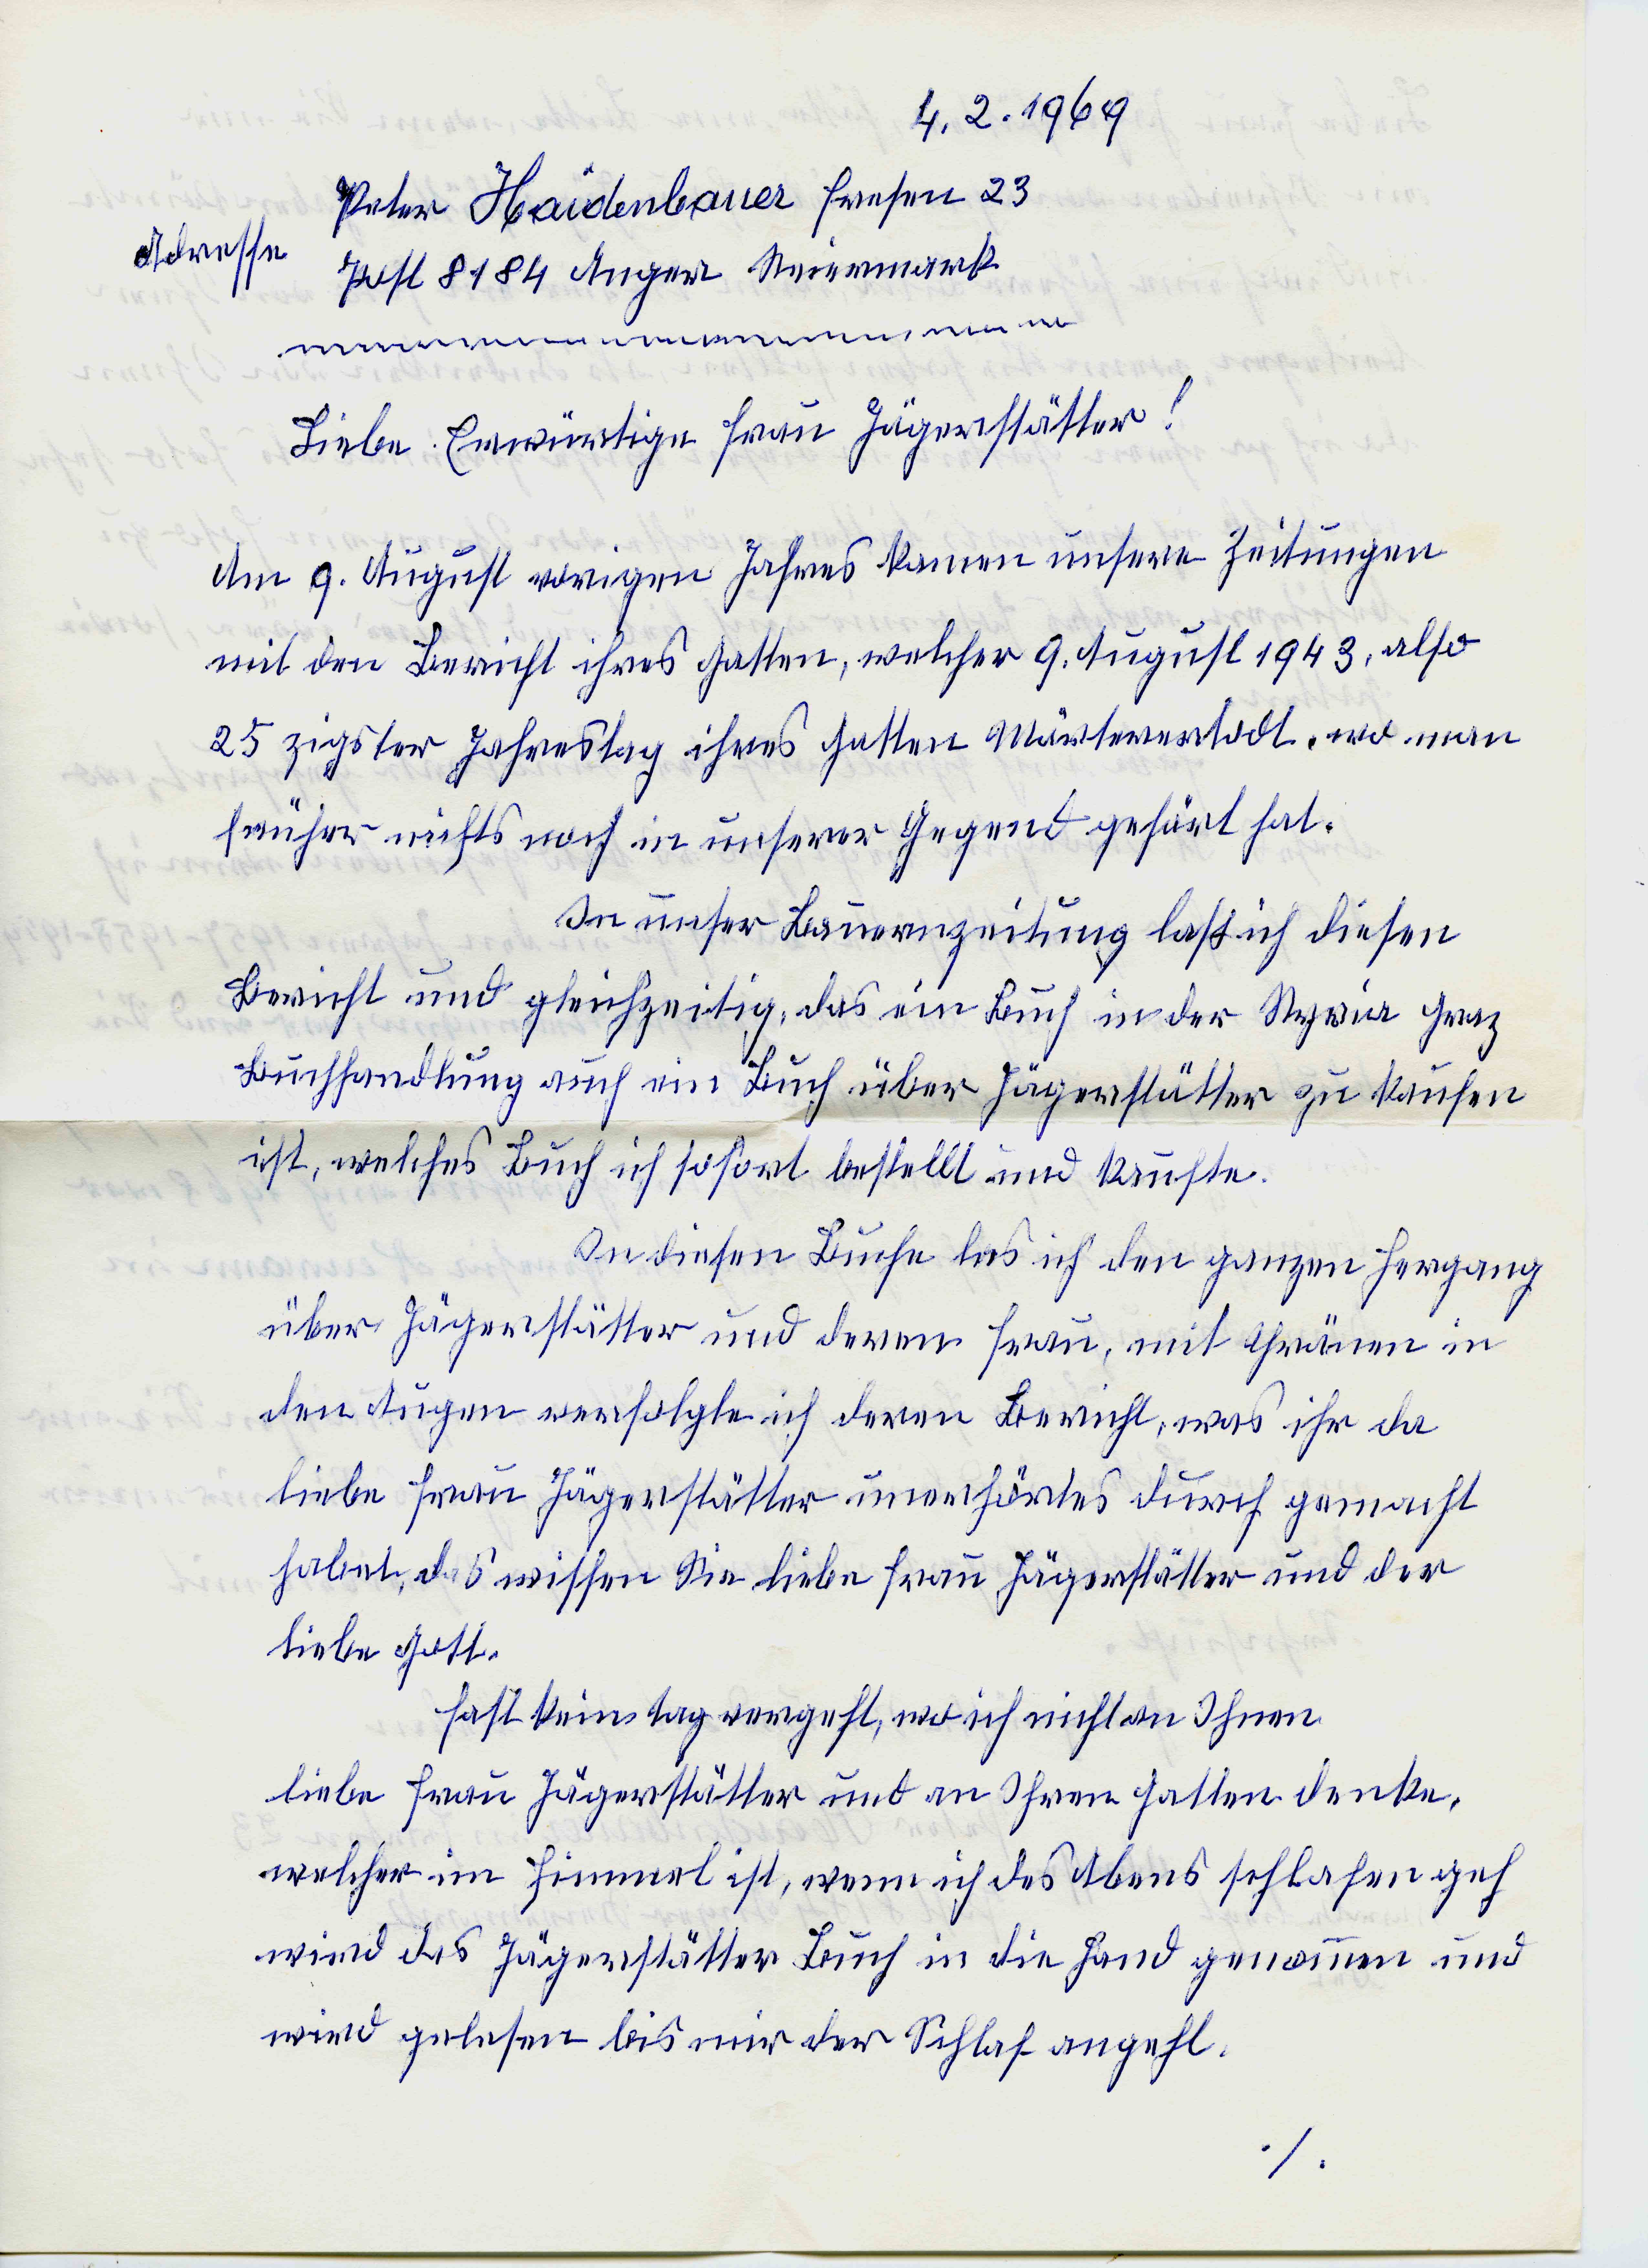 4. 2. 1969
Peter Haidenbauer Fresen 23
Adresse
Post 8184 Anger Steiermark
Liebe Erwürtige Frau Jägerstätter!
Am 9. August vorigen Jahres kamen unsere Zeitungen
mit den Bericht ihres Gatten, welcher 9. August 1943, also
25 zigster Jahrestag ihres Gatten Märterertodt. wo man
früher nichts noch in unserer Gegend gehört hat.
In unser Bauernzeitung laß ich diesen
Bericht und gleichzeitig, das ein Buch in der Styria Graz
Buchhandlung auch ein Buch über Jägerstätter zu kaufen
ist, welches Buch ich sofort bestellt und kaufte.
In diesen Buche las ich den ganzen Hergang
über Jägerstätter und deren Frau, mit Thränen in
den Augen verfolgte ich deren Bericht, was ihr da
liebe Frau Jägerstätter unerhörtes durch gemacht
habet, das wissen Sie liebe Frau Jägerstätter und der
liebe Gott.
Fast kein tag vergeht, wo ich nicht an Ihnen
liebe Frau Jägerstätter und an Ihren Gatten denke,
welcher im Himmel ist, wenn ich des Abens schlafen geh
wird das Jägerstätter Buch in die Hand genommen und
wird gelesen bis mir der Schlaf angeht.
./.